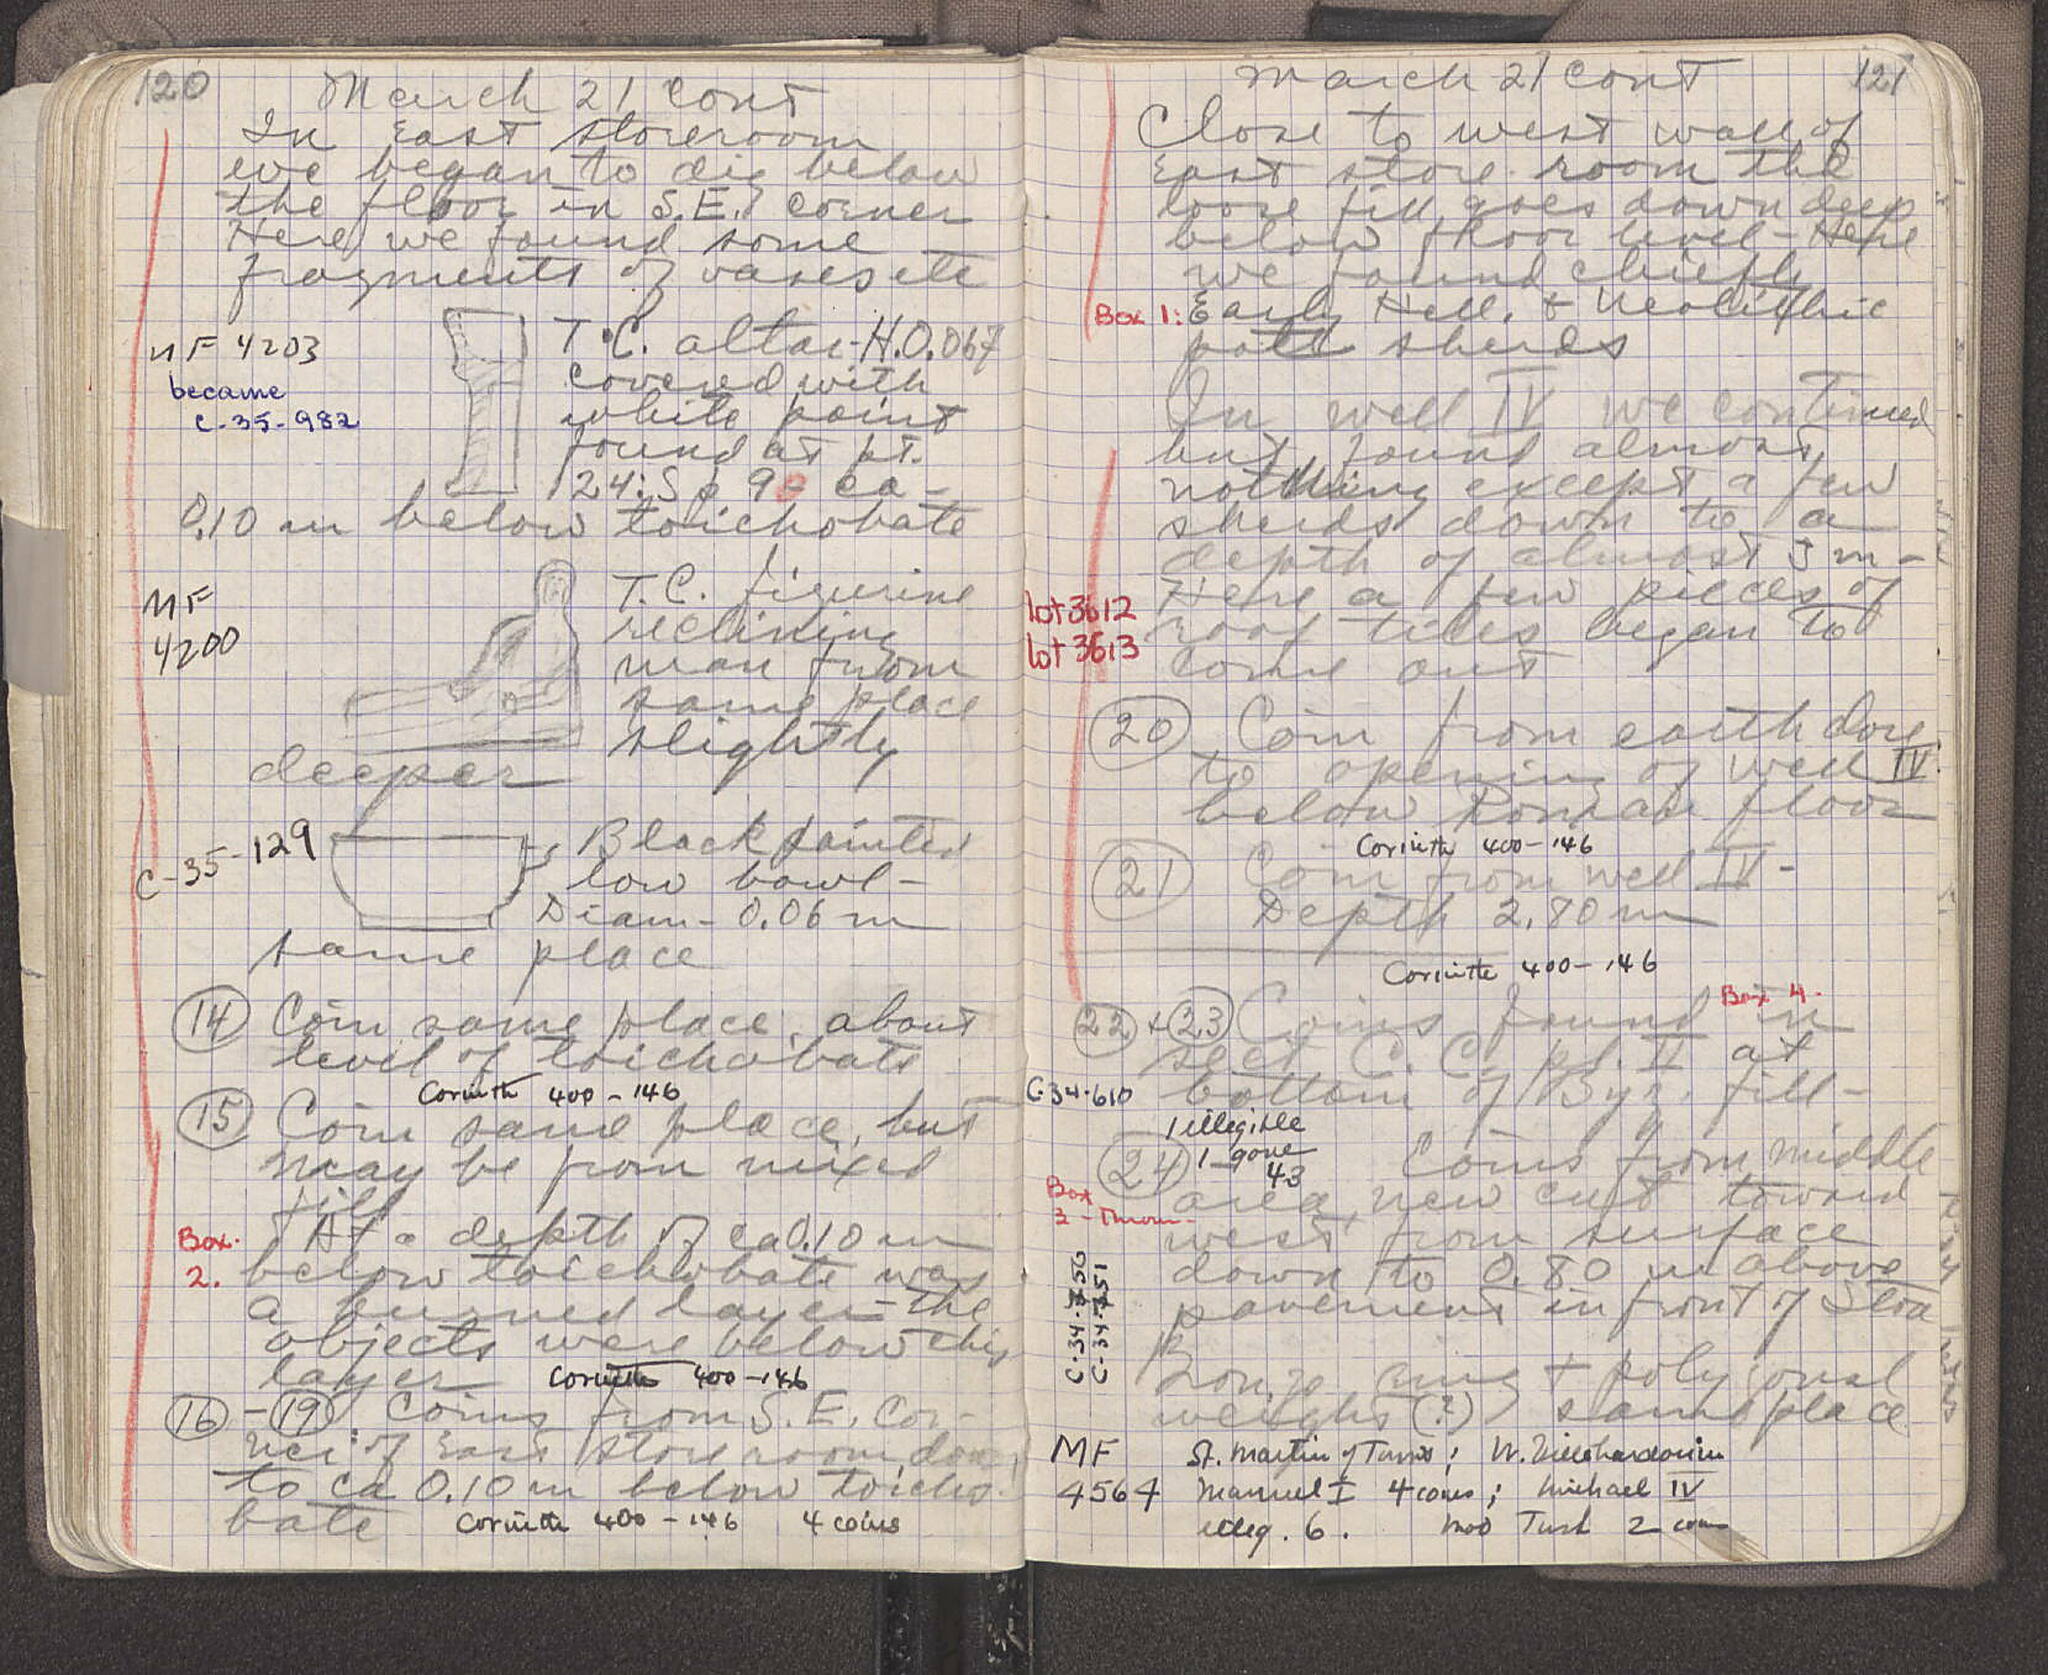 120
March 21 cont
In East storeroom
we began to dig below
the floor in S.E. corner
Here we found some
fragments of vases etc
MF 4203
became
C-35-982
T.C. altar - H. 0.067
covered with
white paint
found at pt.
24:S p 90 ca -
0.10 m below toichobate
MF
4200
T.C. figurine
reclining
man from
same place
slightly
deeper
C-35-129
Black painted
low bowl -
Diam - 0.06 m
same place
14 Coin same place, about
level of toichobate
Corinth 400-146
15 Coin same place, but
may be from mixed
fill
Box
2.
At a depth of ca 0.10 m
below toichobate was
a burned layer - the
objects were below this
layer
Corinth 400-146
16 - 19: Coins from S.E. cor-
ner of East store room, down
to ca 0.10 m below toicho
bate
Corinth 400-146 4 coins
121
March 21 cont
Close to west wall of
East store room the
loose fill goes down deep
below floor level - Here
we found chiefly
Box 1: Early Hell. & Neolithic
pott sherds
In well IV we continued
but found almost
nothing except a few
sherds down to a
depth of almost 3 m -
Here a few pieces of
roof tiles began to
come out
lot 3612
lot 3613
20 Coin from earth
to opening of well IV
below Roman floor
Corinth 400-146
21 Coin from well IV -
Depth 2.80 m
Corinth 400-146
Box 4.
22 + 23 Coins found in
sect C.C. pl. II at
bottom of Byz. fill -
C-34-610
1 illegible
1 gone
43
24 Coins from middle
area, new cut toward
west from surface
down to 0.80 m above
pavement in front of Stoa
Box
3 - Throw
C-34-750
C-34-751
Bronze ring + polygonal
weight (?) same place
MF
4564
St. Martin of Tours; W. Villehardouin
Manuel I 4 coins; Michael IV
illeg. 6. mod Turk 2 coins